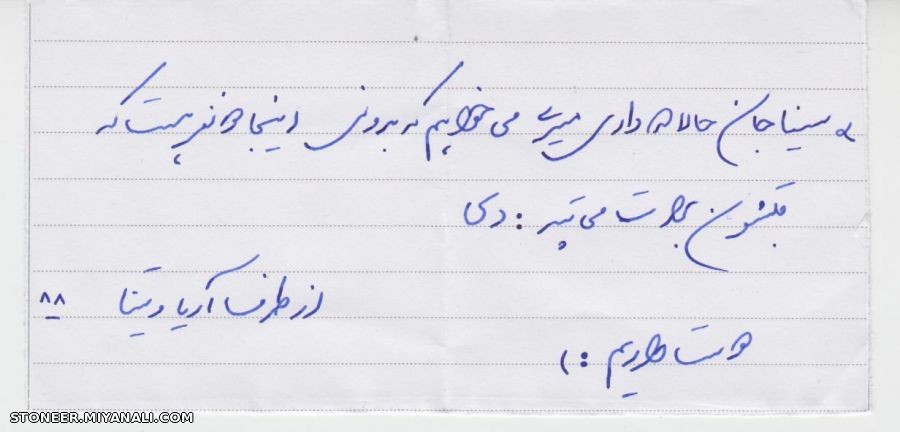 سینا جان حالا که داری میری می‌خوایم که بدونی اینجا دو نفر هست که
قلبشون برات می‌تپد : دی
از طرف آریا و تینا ۸۸
دوست داریم : )
STONEER.MIYANALI.COM